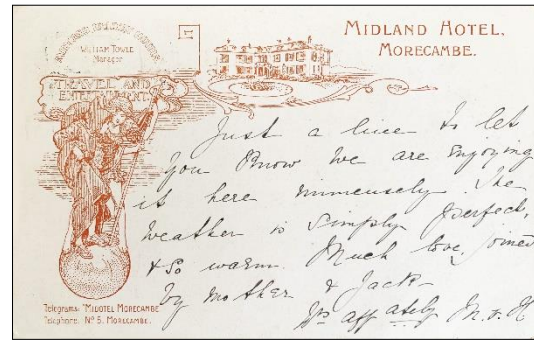 MIDLAND RAILWAY HOTELS
WILLIAM TOWLE
Manager
TRAVEL AND
ENTERTAINMENT
MIDLAND HOTEL,
MORECAMBE.
Just a line to let
you know we are enjoying
it here immensely. The
weather is simply perfect,
& so warm. Much love, joined
by mother & Jack-
Yrs affately M. v. H
Telegrams: "MIDOTEL MORECAMBE
Telephone: No 5. MORECAMBE.